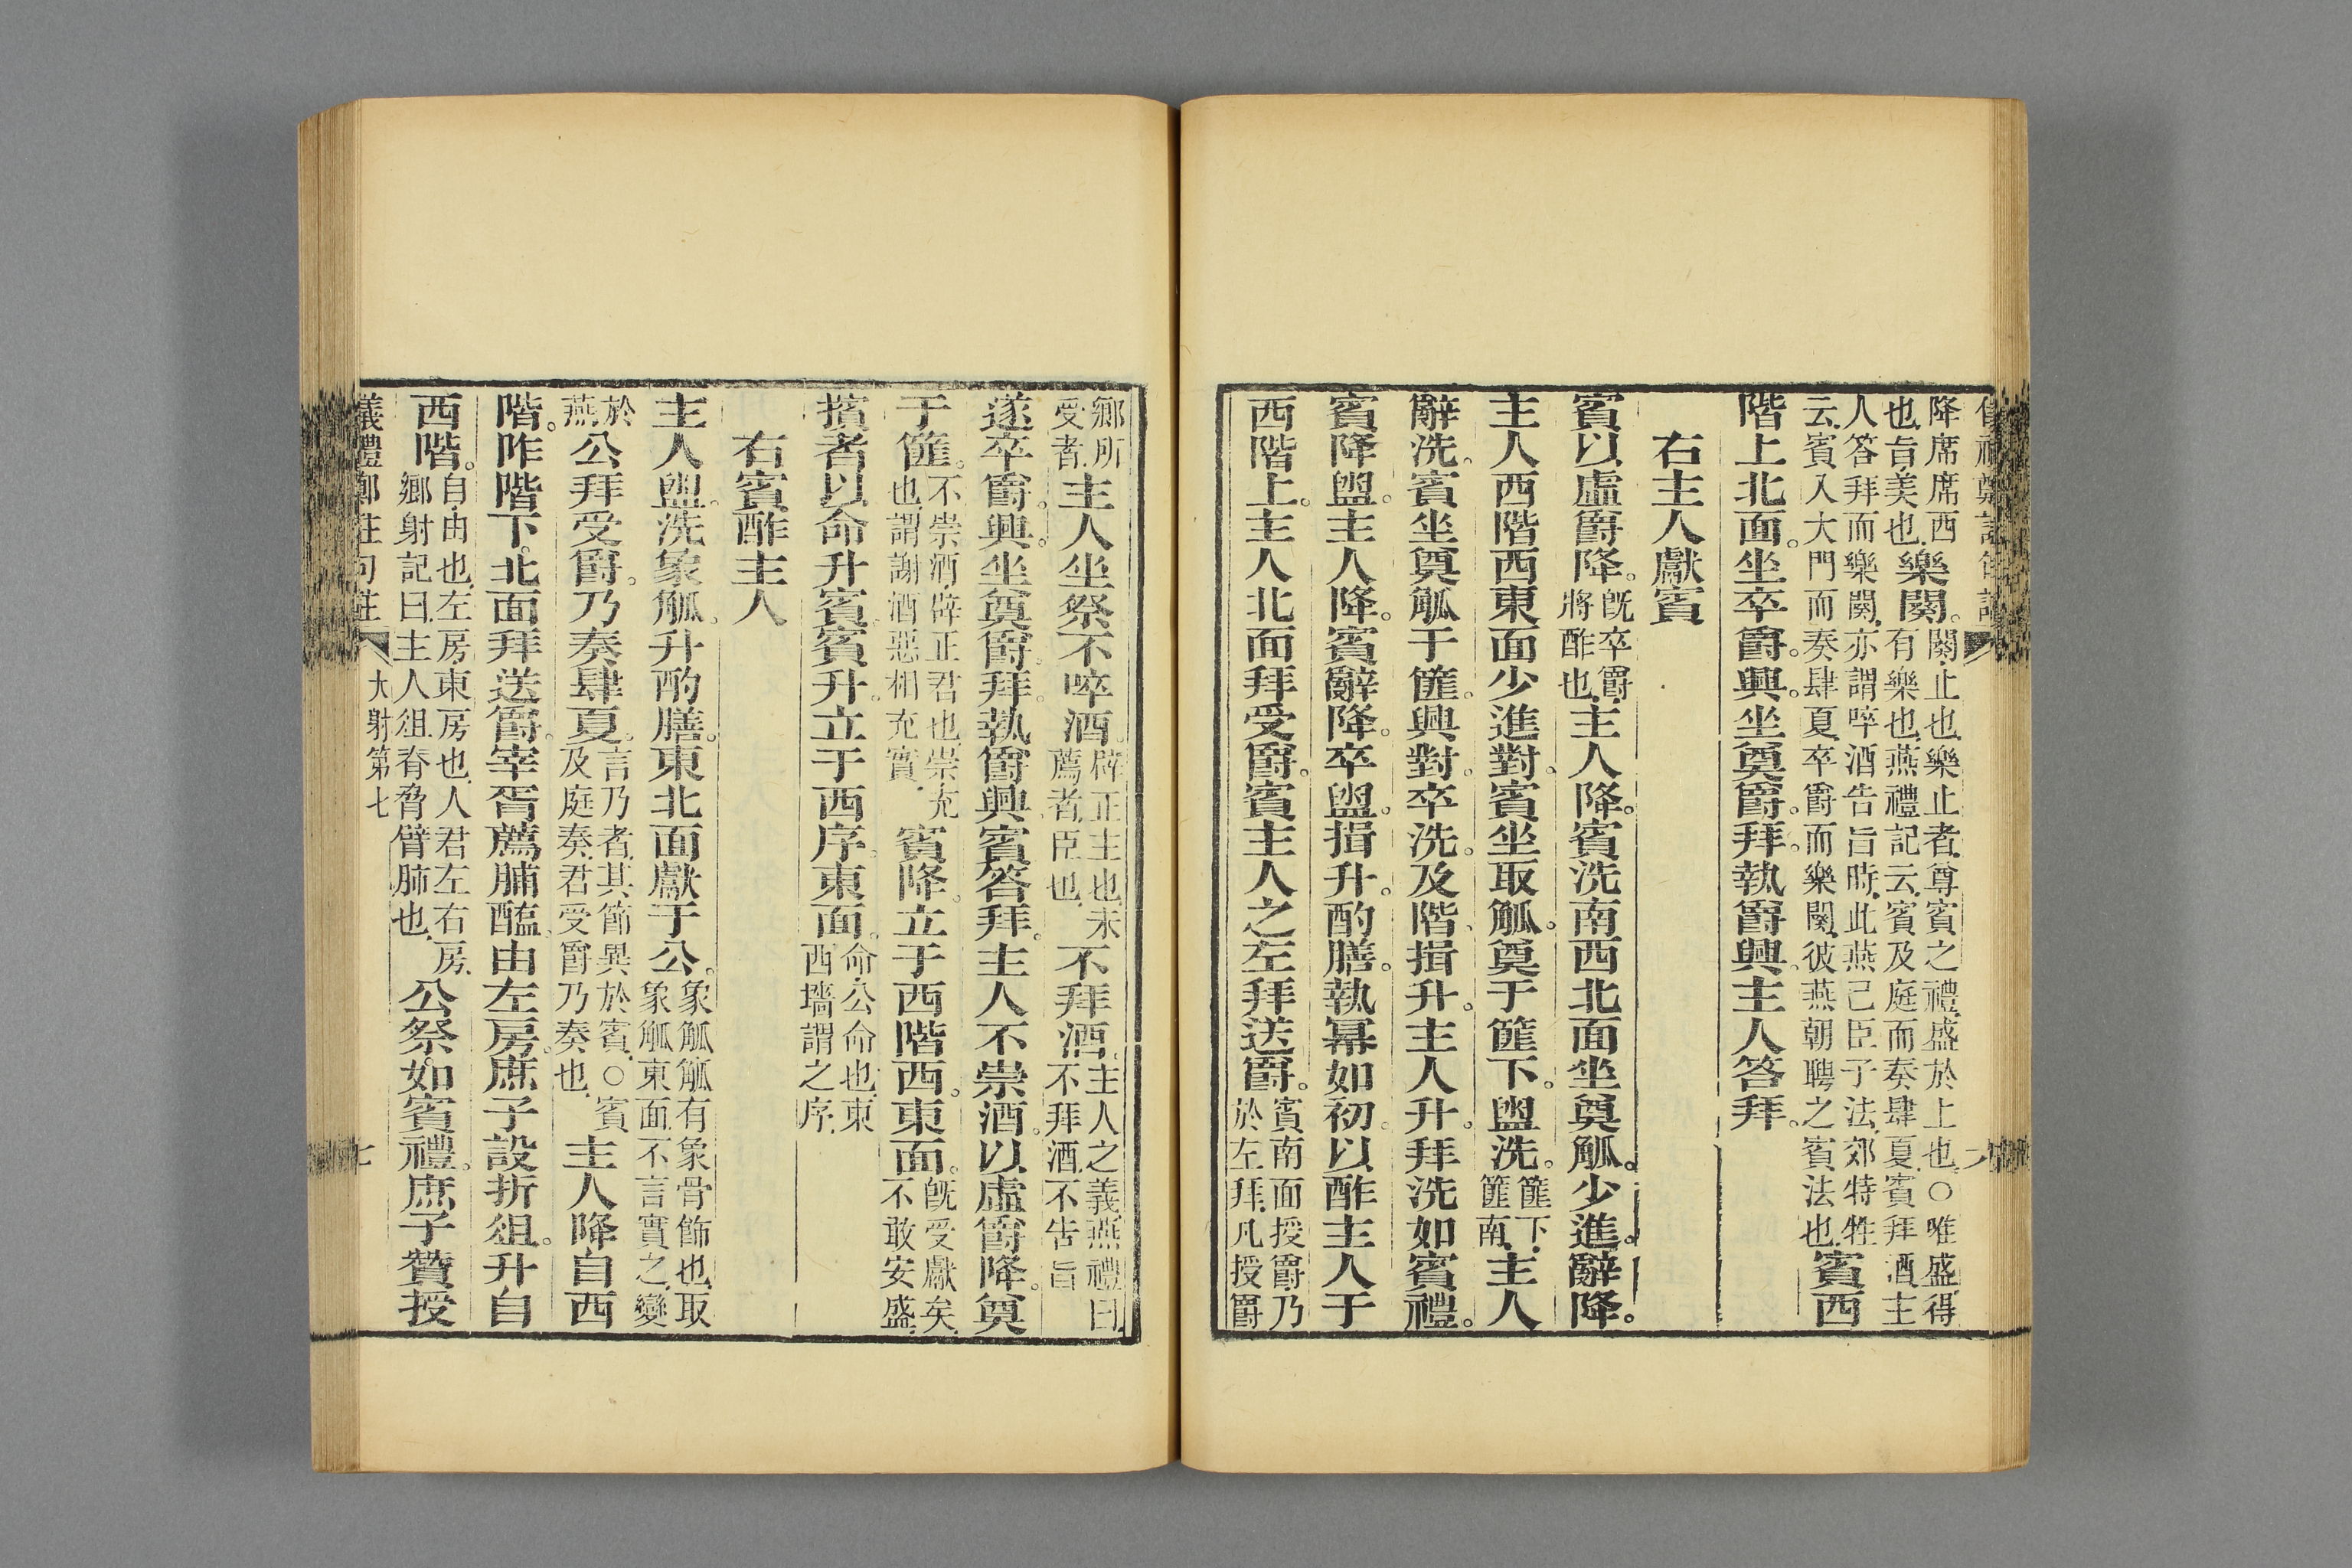 降席席西也旨美也樂闋闋止也樂止者尊賓之禮盛於上也○唯盛得有樂也燕禮記云賓及庭而奏肆夏賓拜酒主
人答拜而樂闋亦謂啐酒告旨時此燕己臣子法郊特牲云賓入大門而奏肆夏卒爵而樂闋彼燕朝聘之賓法也賓西
階上北面坐卒爵興坐奠爵拜執爵興主人答拜
右主人獻賓
賓以虛爵降既卒爵將酢也主人降賓洗南西北面坐奠觚少進辭降
主人西階西東面少進對賓坐取觚奠于篚下盥洗篚下篚南主人
辭洗賓坐奠觚于篚興對卒洗及階揖升主人升拜洗如賓禮
賓降盥主人降賓辭降卒盥揖升酌膳執冪如初以酢主人于
西階上主人北面拜受爵賓主人之左拜送爵賓南面授爵乃於左拜凡授爵
鄉所受者主人坐祭不啐酒辟正主也未薦者臣也不拜酒主人之義燕禮曰不拜酒不告旨
遂卒爵興坐奠爵拜執爵興賓答拜主人不崇酒以虛爵降奠
于篚不崇酒辟正君也崇充也謂謝酒惡相充實賓降立于西階西東面既受獻矣不敢安盛
擯者以命升賓賓升立于西序東面命公命也東西墻謂之序
右賓酢主人
主人盥洗象觚升酌膳東北面獻于公象觚觚有象骨飾也取象觚東面不言實之變
於燕公拜受爵乃奏肆夏言乃者其節異於賓○賓及庭奏君受爵乃奏也主人降自西
階阼階下北面拜送爵宰胥薦脯醢由左房庶子設折俎升自
西階自由也左房東房也人君左右房鄉射記曰主人俎脊脅臂肺也公祭如賓禮庶子贊授
大射第七